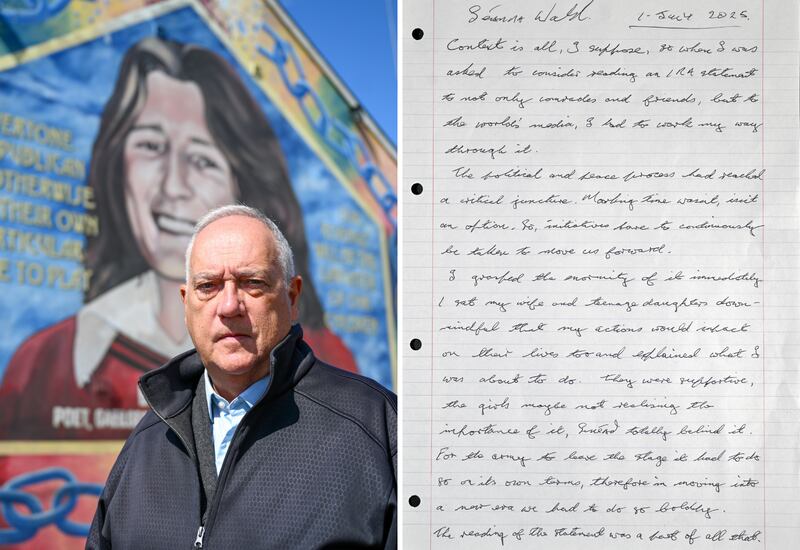 EVERYONE,
REPUBLICAN
OTHERWISE
THEIR OWN
PARTICULAR
E TO PLAY
POET, GAEILG
WILL BE THE
LAUGHTER
OF OUR
CHILDREN
Séanna Walsh. 1-July 2025.
Context is all, I suppose, so when I was
asked to consider reading an IRA statement
to not only comrades and friends, but to
the world's media, I had to work my way
through it.
The political and peace process had reached
a critical juncture. Marking time wasn't, isn't
an option. So, initiatives have to continuously
be taken to move us forward.
I grasped the enormity of it immediately
I sat my wife and teenage daughters down-
mindful that my actions would impact
on their lives too and explained what I
was about to do. They were supportive,
the girls maybe not realising the
importance of it, Sinéad totally behind it.
For the army to leave the stage it had to do
so on its own terms, therefore in moving into
a new era we had to do so boldly.
The reading of the statement was a part of all that.